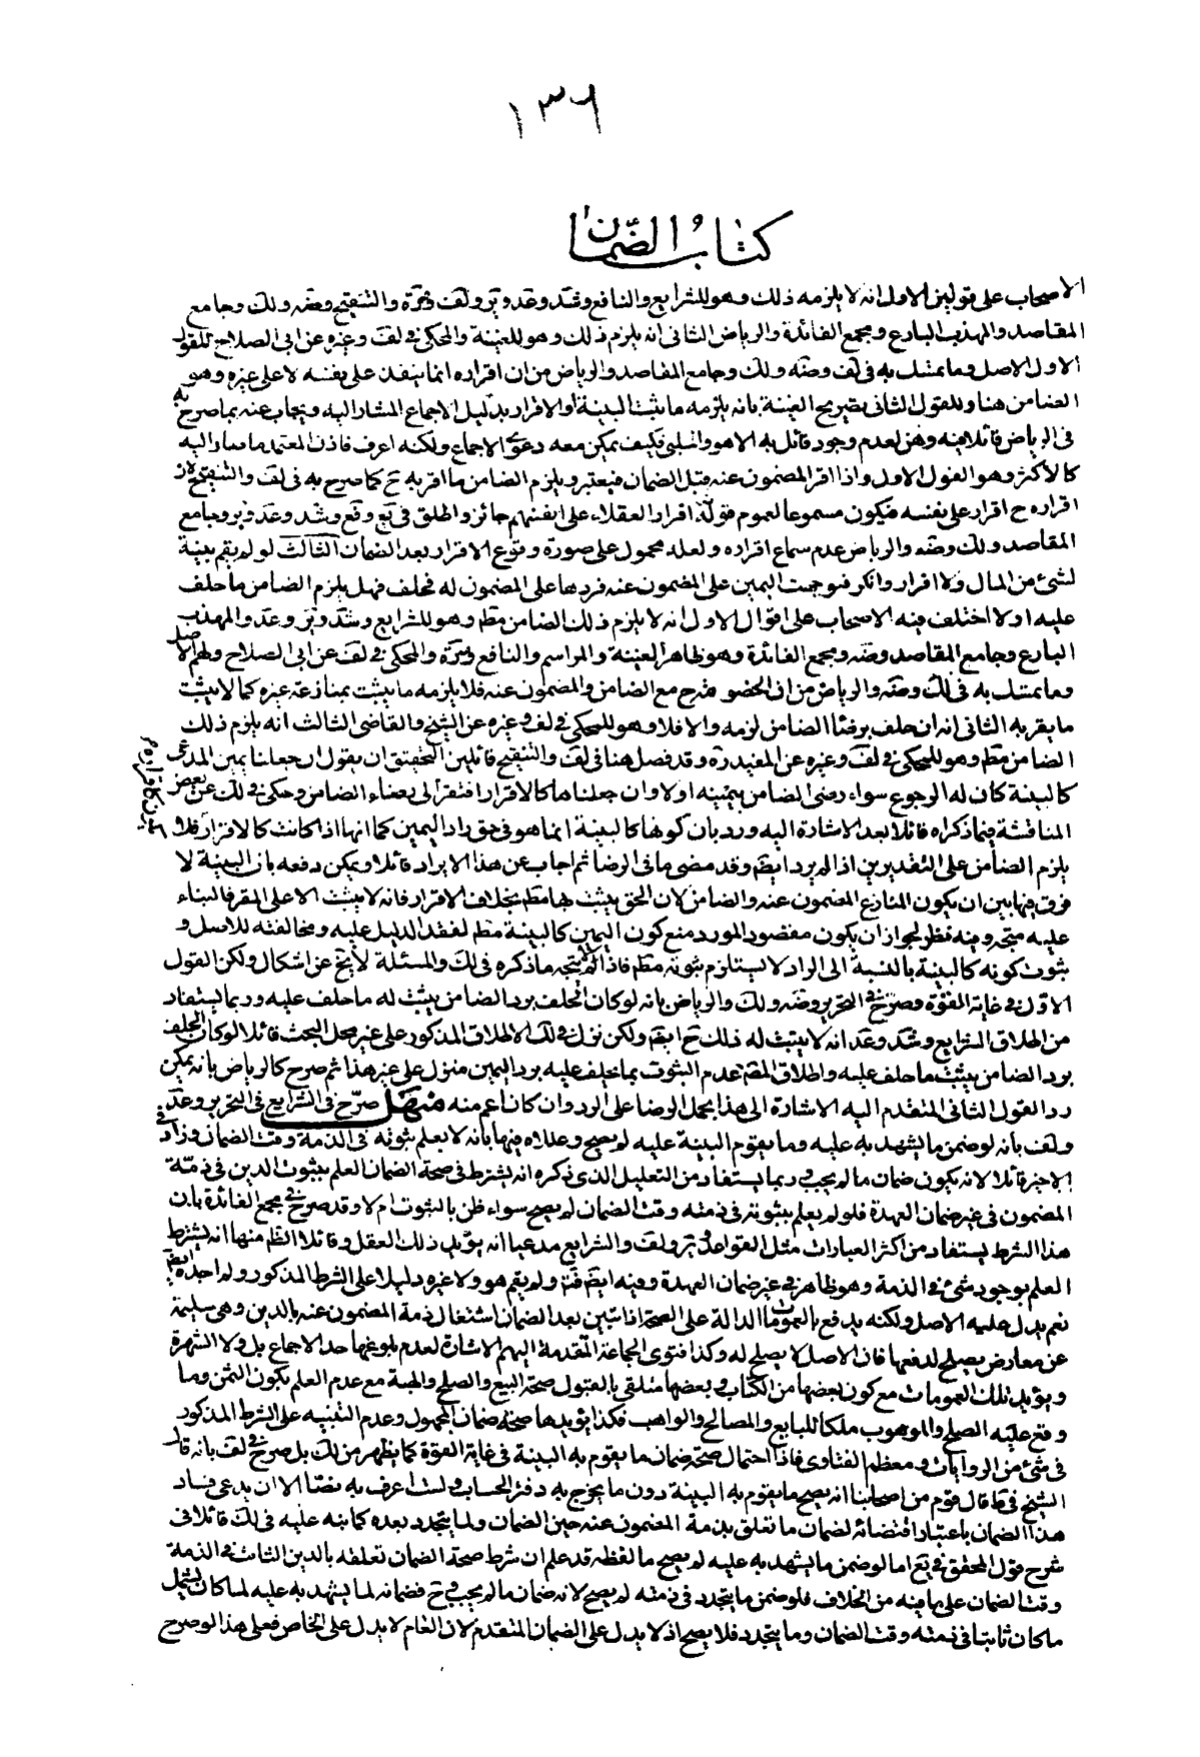 ١٣٦
كتاب الضمان
الاصحاب على قولين الاول انه لا يلزمه ذلك وهو للشرايع والنافع وشد وعد وير ولف وكرة والتنقيح وضه ولك وجامع
المقاصد والمهذب البارع ومجمع الفائدة والرياض الثانى انه يلزم ذلك وهو للغنية والمحكى فى لف وغيره عن ابى الصلاح للقول
الاول الاصل وما تمسك به فى لف وضه ولك وجامع المقاصد والرياض من ان اقراره انما ينفذ على نفسه لا على غيره وهو
الضامن هنا وللقول الثانى تصريح الغنية بانه يلزمه ما يثبت البينة او الاقرار بدليل الاجماع المشار اليه ويجاب عنه بما صرح به
فى الرياض قائلا فيه وهن لعدم وجود قائل به الا هو والحلبى فكيف يمكن معه دعوى الاجماع ولكنه اعرف فاذن المعتمد ما صار اليه
الأكثر وهو القول الاول واذا اقر المضمون عنه قبل الضمان فيعتبر ويلزم الضامن ما اقر به ح كما صرح به فى لف والتنقيح لان
اقراره ح اقرار على نفسه فيكون مسموعا لعموم قوله اقرار العقلاء على انفسهم جائز واطلق فى يع وفع وشد وعد وير وجامع
المقاصد ولك وضه والرياض عدم سماع اقراره ولعله محمول على صورة وقوع الاقرار بعد الضمان الثالث لو لم يقم بينة
لشئ من المال ولا اقرار وانكر فتوجهت اليمين على المضمون عنه فردها على المضمون له فحلف فهل يلزم الضامن ما حلف
عليه او لا اختلف فيه الاصحاب على اقوال الاول انه لا يلزم ذلك الضامن مطم وهو للشرايع وشد وير وعد والمهذب
البارع وجامع المقاصد وضه ومجمع الفائدة وهو ظاهر الغنية والمراسم والنافع وكرة والمحكى فى لف عن ابى الصلاح ولهم الاصل
وما تمسك به فى لك وضه والرياض من ان الخصومة ح مع الضامن والمضمون عنه فلا يلزمه ما يثبت بمنازعة غيره كما لا يثبت
ما يقر به الثانى انه ان حلف برضا الضامن لزمه والا فلا وهو للمحكى فى لف وغيره عن الشيخ والقاضى الثالث انه يلزم ذلك
الضامن مطم وهو للمحكى فى لف وغيره عن المفيد ره وقد فصل هنا فى لف والتنقيح قائلين التحقيق ان يقول ان جعلنا يمين المدعى
كالبينة كان له الرجوع سواء رضى الضامن بيمينه او لا وان جعلناها كالاقرار افتقر الى رضاء الضامن وحكى فى لك عن بعض
المناقشة فيما ذكراه قائلا بعد الاشارة اليه ورد بان كونها كالبينة انما هو فى حق راد اليمين كما انها اذا كانت كالاقرار فلا
يكون كاقراره
يلزم الضامن على التقديرين اذا لم يرد ايضم وقد مضى ما فى الرضا ثم اجاب عن هذا الايراد قائلا ويمكن دفعه بان البينة لا
فرق فيها بين ان يكون المنازع المضمون عنه والضامن لان الحق يثبت بها مطم بخلاف الاقرار فانه لا يثبت الا على المقر فالبناء
عليه متجه وفيه نظر لجواز ان يكون مقصود المورد منع كون اليمين كالبينة مطم لفقد الدليل عليه ومخالفته للاصل و
ثبوت كونه كالبينة بالنسبة الى الراد لا يستلزم ثبوته مطم فاذا لم يتجه ما ذكره فى لك والمسئلة لا يخ عن اشكال ولكن القول
الاول فى غاية القوة وصرح فى التحرير وضه ولك والرياض بانه لو كان الحلف برد الضامن يثبت له ما حلف عليه وربما يستفاد
من اطلاق الشرايع وشد وعد انه لا يثبت له ذلك ح ايضم ولكن نزل فى لك الاطلاق المذكور على غير محل البحث قائلا لو كان الحلف
برد الضامن يثبت ما حلف عليه واطلاق المصم عدم الثبوت بما يحلف عليه برد اليمين منزل على غير هذا ثم صرح كالرياض بانه يمكن
رد القول الثانى المتقدم اليه الاشارة الى هذا بحمل الرضا على الرد وان كان اعم منه منهل صرح فى الشرايع فى التحرير وعد فى
ولف بانه لو ضمن ما يشهد به عليه وما يقوم البينة عليه لم يصح وعللاه فيها بانه لا يعلم ثبوته فى الذمة وقت الضمان وزاد
الاخير قائلا لانه يكون ضمان ما لم يجب وربما يستفاد من التعليل الذى ذكره انه يشترط فى صحة الضمان العلم بثبوت الدين فى ذمة
المضمون فى غير ضمان العهدة فلو لم يعلم بثبوته فى ذمته وقت الضمان لم يصح سواء ظن بالثبوت ام لا وقد صرح فى مجمع الفائدة بان
هذا الشرط يستفاد من اكثر العبارات مثل القواعد وير ولف والشرايع مدعيا انه يؤيد ذلك العقل وقائلا الظم منها انه يشترط
العلم بوجود شئ فى الذمة وهو ظاهر فى غير ضمان العهدة وفيه ايضم ولم يقم هو ولا غيره دليلا على الشرط المذكور ولم اجده ايضم
نعم يدل عليه الاصل ولكنه يدفع بالعمومات الدالة على الصحة اذا تبين بعد الضمان اشتغال ذمة المضمون عنه بالدين وهى سليمة
عن معارض يصلح لدفعها فان الاصل لا يصلح له وكذا فتوى الجماعة المتقدمة اليهم الاشارة لعدم بلوغها حد الاجماع بل ولا الشهرة
ويؤيد تلك العمومات مع كون بعضها من الكتاب وبعضها متلقى بالقبول صحة البيع والصلح والهبة مع عدم العلم بكون الثمن وما
وقع عليه الصلح والموهوب ملكا للبايع والمصالح والواهب فكذا يؤيدها صحة ضمان المجهول وعدم التنبيه على الشرط المذكور
فى شئ من الروايات ومعظم الفتاوى فاذا احتمال صحة ضمان ما يقوم به البينة فى غاية القوة كما يظهر من لك بل صرح فى لف بانه قال
الشيخ فى ط قال قوم من اصحابنا انه يصح ما يقوم به البينة دون ما يخرج به دفتر الحساب ولست اعرف به نصا الا ان يدعى فساد
هذا الضمان باعتبار اقتضائه لضمان ما تعلق بذمة المضمون عنه حين الضمان ولما يتجدد بعده كما نبه عليه فى لك قائلا فى
شرح قول المحقق فى يع اما لو ضمن ما يشهد به عليه لم يصح ما لفظه قد علم ان شرط صحة الضمان تعلقه بالدين الثابت فى الذمة
وقت الضمان على ما فيه من الخلاف فلو ضمن ما يتجدد فى ذمته لم يصح لانه ضمان ما لم يجب وح فضمانه لما يشهد به عليه لما كان يشمل
ما كان ثابتا فى ذمته وقت الضمان وما يتجدد فلا يصح اذ لا يدل على الضمان المتقدم لان العام لا يدل على الخاص فعلى هذا لو صرح